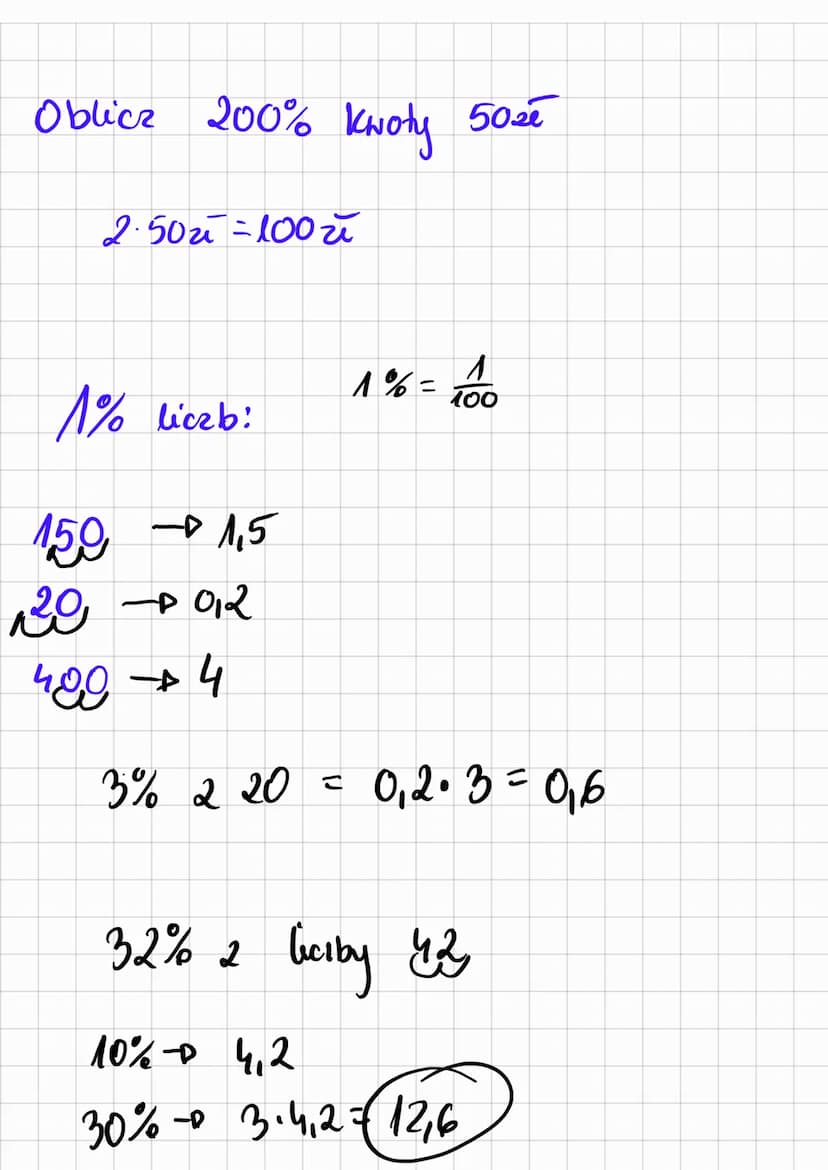 Oblicz 200% kwoty 50zł
2·50zł=100zł
1%=1/100
1% liczb:
150 → 1,5
20 → 0,2
400 → 4
3% z 20 = 0,2·3=0,6
32% z liczby 42
10%→ 4,2
30%→ 3·4,2=12,6